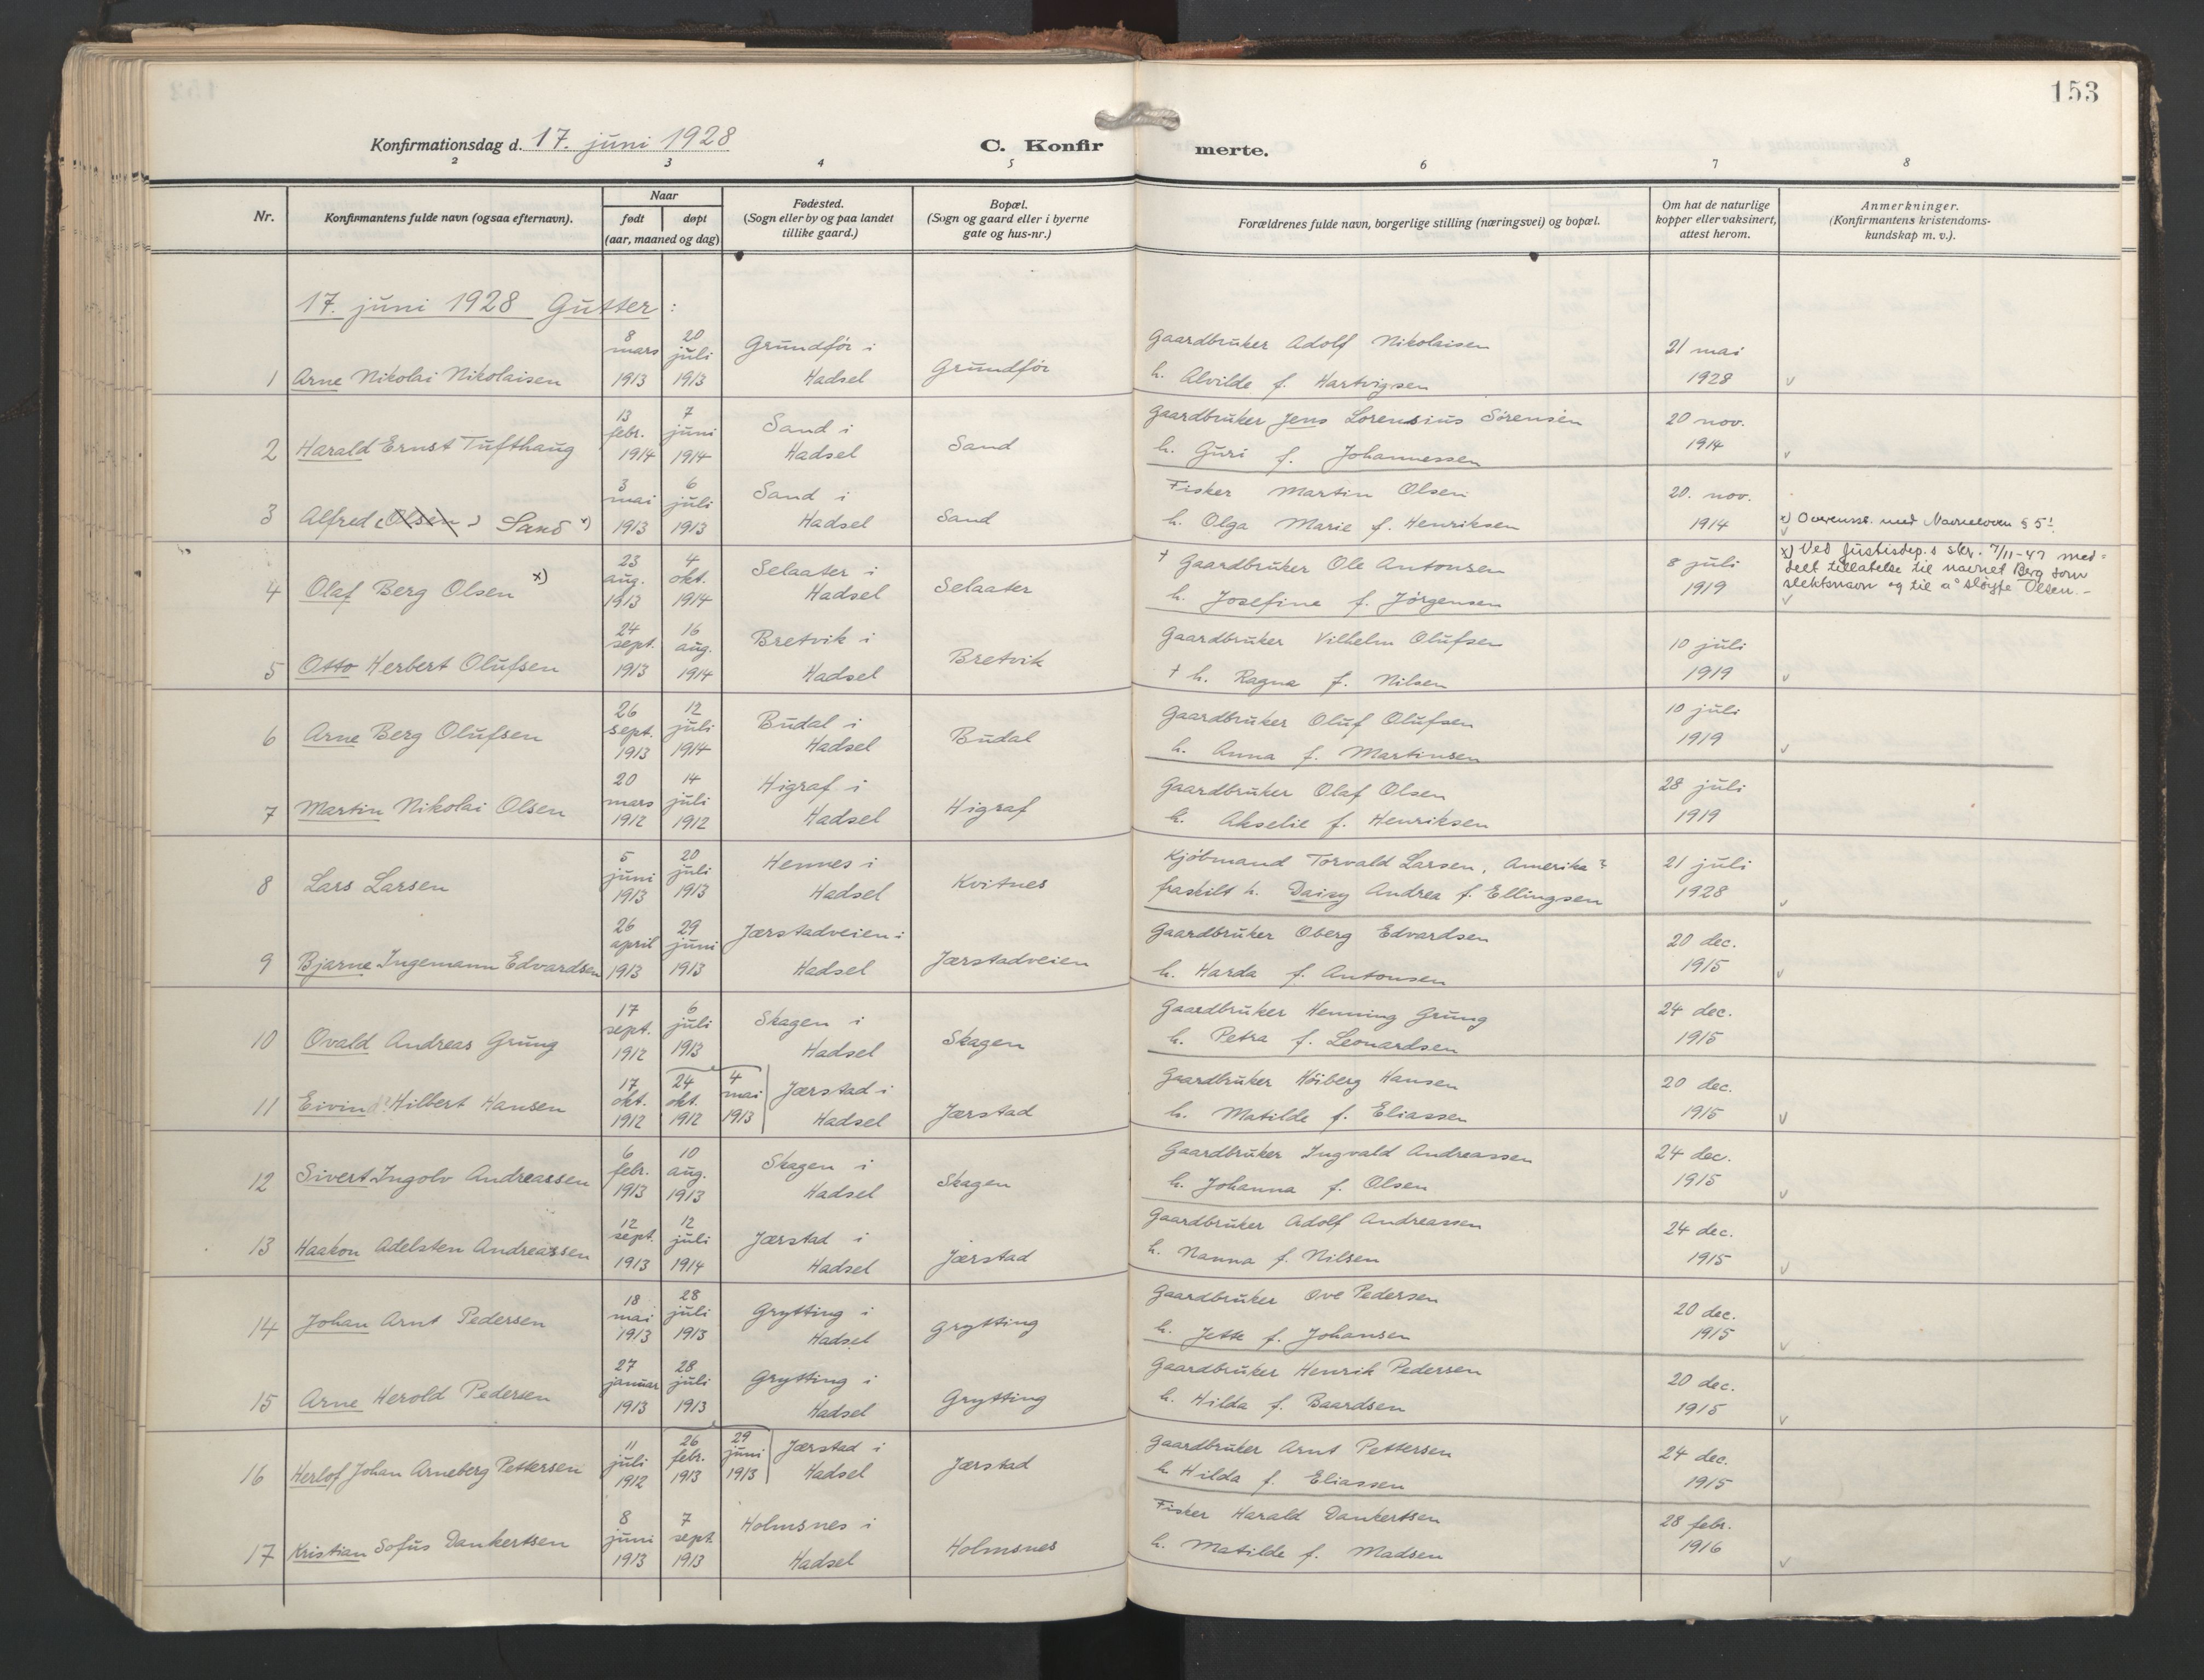 153
Konfirmationsdag d. 17. juni 1928
C. Konfirmerte.
2 3 4 5 6 7 8
Nr.
Konfirmantens fulde navn (ogsaa efternavn).
Naar
født døpt
(aar, maaned og dag)
Fødested.
(Sogn eller by og paa landet
tillike gaard.)
Bopæl.
(Sogn og gaard eller i byerne
gate og hus-nr.)
Forældrenes fulde navn, borgerlige stilling (næringsvei) og bopæl.
Om hat de naturlige
kopper eller vaksinert,
attest herom.
Anmerkninger.
(Konfirmantens kristendoms-
kundskap m. v.).
17. juni 1928 Gutter:
1 Arne Nikolai Nikolaisen
8 mars 1913
20 juli 1913
Grundför i
Hadsel
Grundför
Gaardbruker Adolf Nikolaisen
h. Alvilde f. Hartvigsen
21 mai
1928
v
2 Harald Ernst Tufthaug
13 febr. 1914
7 juni 1914
Sand i
Hadsel
Sand
Gaardbruker Jens Lorensius Sörensen
h. Guri f. Johannessen
20 nov.
1914
v
3 Alfred (Olsen) Sand x)
3 mai 1913
6 juli 1913
Sand i
Hadsel
Sand
Fisker Martin Olsen
h. Olga Marie f. Henriksen
20. nov.
1914
x) Overenss. med Navneloven § 5!
v
4 Olaf Berg Olsen x)
23 aug. 1913
4 okt. 1914
Selaater i
Hadsel
Selaater
† Gaardbruker Ole Antonsen
h. Josefine f. Jörgensen
8 juli
1919
x) Ved Justisdep.s skr. 7/11-47 med=
delt tillatelse til navnet Berg som
slektsnavn og til å sløyfe Olsen.-
v
5 Otto Herbert Olufsen
24 sept. 1913
16 aug. 1914
Bretvik i
Hadsel
Bretvik
Gaardbruker Vilhelm Olufsen
† h. Ragna f. Nilsen
10 juli
1919
v
6 Arne Berg Olufsen
26 sept. 1913
12 juli 1914
Budal i
Hadsel
Budal
Gaardbruker Oluf Olufsen
h. Anna f. Martinsen
10 juli
1919
v
7 Martin Nikolai Olsen
20 mars 1912
14 juli 1912
Higraf i
Hadsel
Higraf
Gaardbruker Olaf Olsen
h. Akselie f. Henriksen
28 juli
1919
8 Lars Larsen
5 juni 1913
20 juli 1913
Hennes i
Hadsel
Kvitnes
Kjöbmand Torvald Larsen, Amerika?
fraskilt h. Daisy Andrea f. Ellingsen
21 juli
1928
v
9 Bjarne Ingemann Edvardsen
26 april 1913
29 juni 1913
Jærstadveien i
Hadsel
Jærstadveien
Gaardbruker Oberg Edvardsen
h. Harda f. Antonsen
20 dec.
1915
v
10 Ovald Andreas Grung
17 sept. 1912
6 juli 1913
Skagen i
Hadsel
Skagen
Gaardbruker Henning Grung
h. Petra f. Leonardsen
24 dec.
1915
11 Eivind Hilbert Hansen
17 okt. 1912
24 okt. 1912
4 mai 1913
Jærstad i
Hadsel
Jærstad
Gaardbruker Höiberg Hansen
h. Matilde f. Eliassen
20 dec.
1915
v
12 Sivert Ingolv Andreassen
6 febr. 1913
10 aug. 1913
Skagen i
Hadsel
Skagen
Gaardbruker Ingvald Andreassen
h. Johanna f. Olsen
24 dec.
1915
v
13 Haakon Adelsten Andreassen
12 sept. 1913
12 juli 1914
Jærstad i
Hadsel
Jærstad
Gaardbruker Adolf Andreassen
h. Nanna f. Nilsen
24 dec.
1915
v
14 Johan Arnt Pedersen
18 mai 1913
28 juli 1913
Grytting i
Hadsel
Grytting
Gaardbruker Ove Pedersen
h. Jette f. Johansen
20 dec.
1915
v
15 Arne Herold Pedersen
27 januar 1913
28 juli 1913
Grytting i
Hadsel
Grytting
Gaardbruker Henrik Pedersen
h. Hilda f. Baardsen
20 dec.
1915
v
16 Herlof Johan Arneberg Pettersen
11 juli 1912
26 febr. 1913
29 juni 1913
Jærstad i
Hadsel
Jærstad
Gaardbruker Arnt Pettersen
h. Hilda f. Eliassen
24 dec.
1915
17 Kristian Sofus Dankertsen
8 juni 1913
7 sept. 1913
Holmsnes i
Hadsel
Holmsnes
Fisker Harald Dankertsen
h. Matilde f. Madsen
28 febr.
1916
v